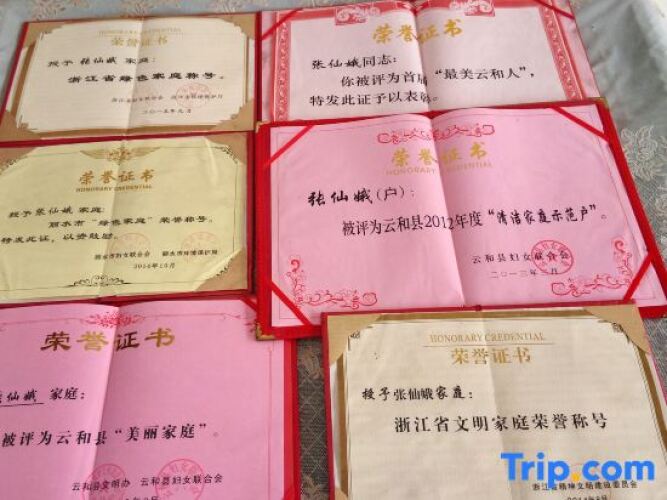 HONORARY CREDENTIAL
荣誉证书
授予 张仙娥 家庭:
浙江省绿色家庭称号。
浙江省妇女联合会
二〇一五年九月
荣誉证书
张仙娥同志:
你被评为首届“最美云和人”,
特发此证予以表彰。
荣誉证书
HONORARY CREDENTIAL
授予张仙娥 家庭:
丽水市“绿色家庭”荣誉称号。
特发此证,以资鼓励。
丽水市妇女联合会 丽水市环境保护局
2014年10月
荣誉证书
HONORARY CREDENTIAL
张仙娥(户):
被评为云和县2012年度“清洁家庭示范户”。
云和县妇女联合会
二〇一三年 月
荣誉证书
仙娥 家庭:
被评为云和县“美丽家庭”。
云和县文明办 云和县妇女联合会
HONORARY CREDENTIAL
荣誉证书
授予张仙娥家庭:
浙江省文明家庭荣誉称号
浙江省精神文明建设委员会
Trip.com